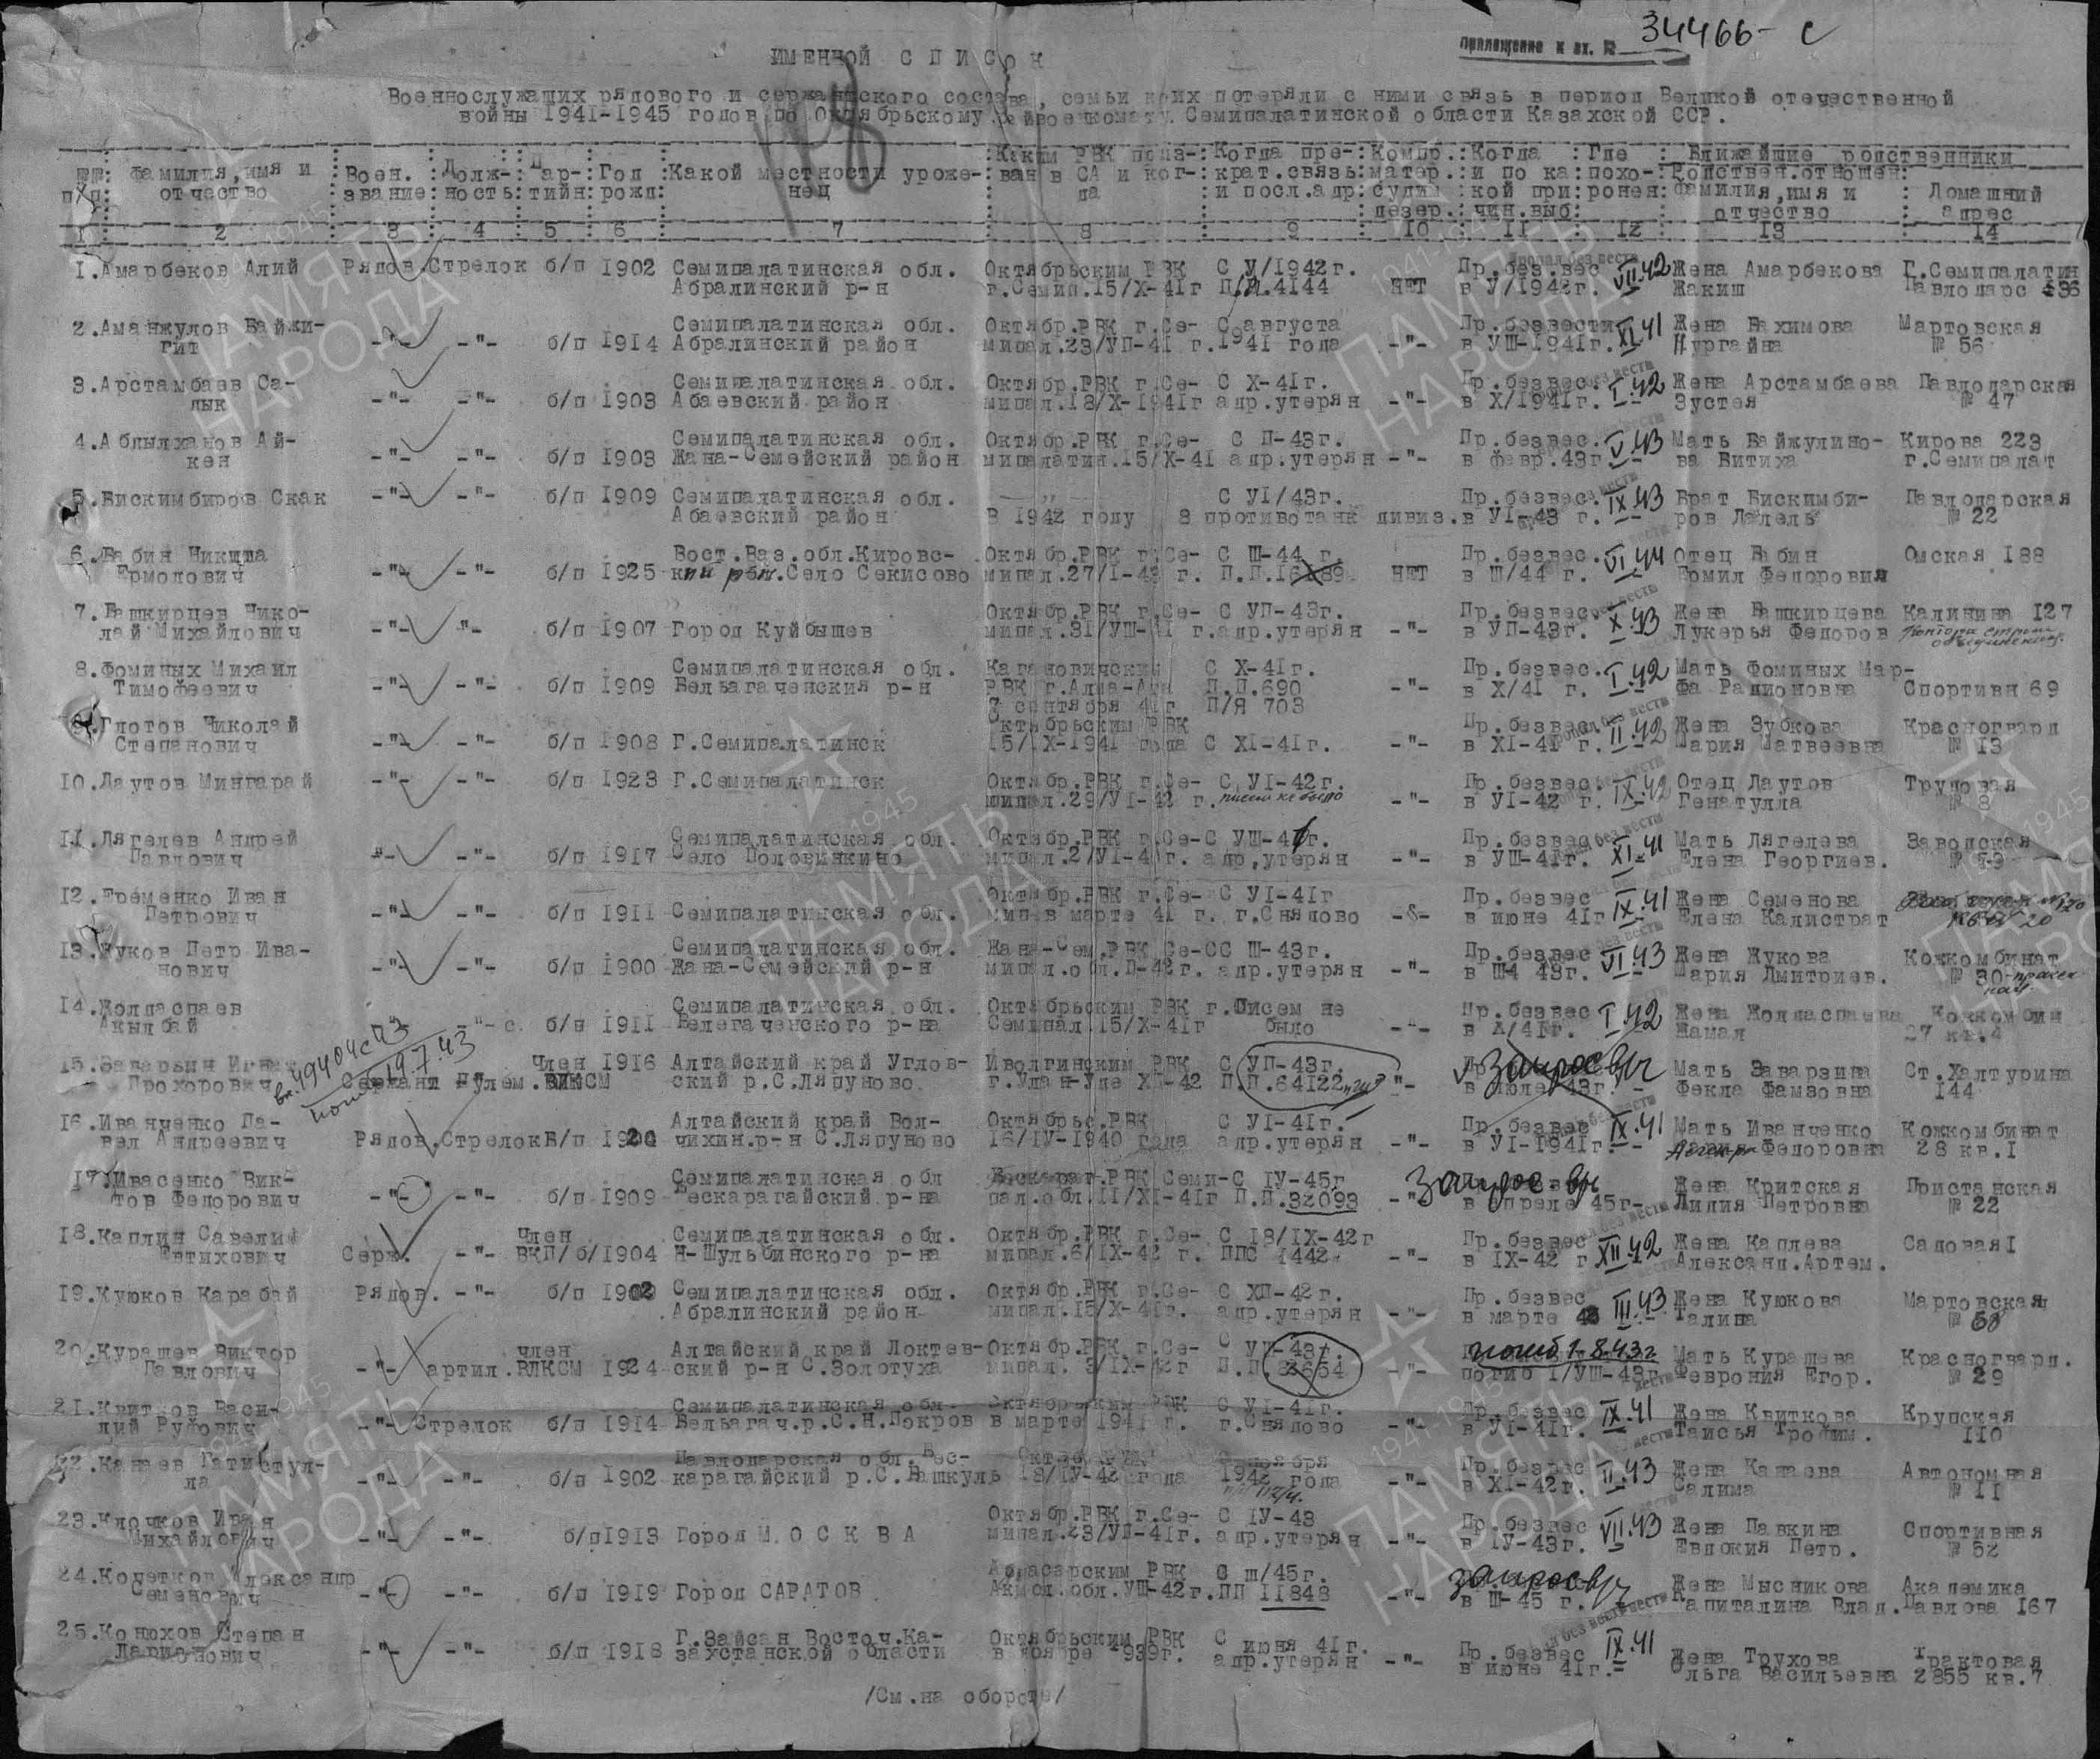 34466- с
приложение к вх. №
ИМЕННОЙ СПИСОК
Военнослужащих рядового и сержантского состава, семьи коих потеряли с ними связь в период Великой отечественной
войны 1941-1945 годов по Октябрьскому райвоенкомату. Семипалатинской области Казахской ССР.
№№ п/п : фамилия, имя и отчество : Воен. звание : Должность : Пар-тийн : Год рожд : Какой местности уроже-нец : Каким РВК приз-ван в СА и ког-да : Когда пре-крат.связь и посл.адр : Компр. матер. судим дезер. : Когда и по ка кой при чин.выб : Где похо-ронен : Ближайшие родственники
Родствен.отношен фамилия, имя и отчество : Домашний адрес
1 2 3 4 5 6 7 8 9 10 11 12 13 14
1.Амарбеков Алий Рядов.Стрелок б/п 1902 Семипалатинская обл. Октябрьским РВК С У/1942г. Пр.без.вес VII.42 Жена Амарбекова Г.Семипалатин
Абралинский р-н г.Семип.15/X-41г П/П.4144 НЕТ в У/1942г. Жакиш Павлодарс 136
2.Аманжулов Байжи- Семипалатинская обл. Октябр.РВК г.Се- С августа Пр.безвести XI.41 Жена Бахимова Мартовская
гит -"- -"- б/п 1914 Абралинский район мипал.23/УП-41 г. 1941 года -"- в УШ-1941г. Нургайна № 56
3.Арстамбаев Са- Семипалатинская обл. Октябр.РВК г.Се- С X-41г. Пр.безвес. I.42 Жена Арстамбаева Павлодарская
дык -"- -"- б/п 1903 Абаевский район мипал.18/X-1941г адр.утерян -"- в X/1941г. Зустея № 47
4.Аблылханов Ай- Семипалатинская обл. Октябр.РВК г.Се- С П-43г. Пр.безвес. V.43 Мать Байжулино- Кирова 223
кен -"- -"- б/п 1903 Жана-Семейский район мипалатин.15/X-41 адр.утерян -"- в февр.43г. ва Битиха г.Семипалат
5.Бискимбиров Скак -"- -"- б/п 1909 Семипалатинская обл. -"- С УI/43г. Пр.безвес. IX.43 Брат Бискимби- Павлодарская
Абаевский район В 1942 году 8 противотанк дивиз. в УI-43 г. ров Далель № 22
6.Бабин Никита Вост.Каз.обл.Кировс- Октябр.РВК г.Се- С Ш-44 г. Пр.безвес. VI.44 Отец Бабин Омская 188
Ермолович -"- -"- б/п 1925 кий р-н.Село Секисово мипал.27/I-43 г. НЕТ в Ш/44 г. Ермил Федорович
7.Башкирцев Нико- Октябр.РВК г.Се- С УП-43г. Пр.безвес. X.43 Жена Башкирцева Калинина 127
лай Михайлович -"- "- б/п 1907 Город Куйбышев мипал.31/УШ-41 г.адр.утерян -"- в УП-43г. Лукерья Федоров
8.Фоминых Михаил Семипалатинская обл. Кагановичским С X-41г. Пр.безвес. I.42 Мать Фоминых Мар-
Тимофеевич -"- -"- б/п 1909 Бельагаченския р-н РВК г.Алма-Ата П.П.690 -"- в X/41 г. фа Радионовна Спортивн 69
7 сентября 41г П/Я 703
9.Глотов Николай Октябрьским РВК Пр.безвес II.42 Жена Зубкова Красногвард
Степанович -"- -"- б/п 1908 Г.Семипалатинск 15/IX-1941 года С XI-41г. -"- в XI-41 г. Мария Матвеевна № 13
10.Даутов Мингарай -"- -"- б/п 1923 Г.Семипалатинск Октябр.РВК г.Се- С УI-42г. Пр.безвес. IX.42 Отец Даутов Трудовая
мипал.29/УI-42 г. писем не было -"- в УI-42 г. Генатулла № 8
11.Дягелев Андрей Семипалатинская обл. Октябр.РВК г.Се- С УШ-41г. Пр.безвес XI.41 Мать Дягелева Заводская
Павлович "- -"- б/п 1917 Село Половинкино мипал.2/УI-41г. адр,утерян -"- в УШ-41г. Елена Георгиев. № 79
12.Еременко Иван Октябр.РВК г.Се- С УI-41г Пр.безвес IX.41 Жена Семенова
Петрович -"- -"- б/п 1911 Семипалатинская обл. мип в марте 41 г. г.Снядово -"- в июне 41г Елена Калистрат
13.Жуков Петр Ива- Семипалатинская обл. Жана-Сем.РВК Се- С Ш-43г. Пр.безвес VI.43 Жена Жукова Кожкомбинат
нович -"- -"- б/п 1900 Жана-Семейский р-н мипал.обл.П-42г. адр.утерян -"- в Ш 43г. Мария Дмитриев. № 30
14.Жолдаспаев Семипалатинская обл. Октябрьским РВК г. Писем не Пр.безвес I.42 Жена Жолдаспаева Кожкомбин
Акылбай -"- с. б/п 1911 Белегаченского р-на Семипал.15/X-41г было -"- в X/41г. Жамая 27 кв.4
вх.49404с43
погиб 19.7.43
15.Заварзин Игнат Член 1916 Алтайский край Углов- Иволгинским РВК С УП-43г. запрос в/ч Мать Заварзина Ст.Халтурина
Прохорович Сержант Пулем. ВЛКСМ ский р.С.Ляпуново г.Улан-Уде XП-42 П.П.64122 "- в июле 43г. Фекла Фамзовна 144
16.Иванченко Па- Алтайский край Вол- Октябрьс.РВК С УI-41г. Пр.безвес IX.41 Мать Иванченко Кожкомбинат
вел Андреевич Рядов.Стрелок Б/п 1920 чихин.р-н С.Ляпуново 16/IУ-1940 года адр.утерян -"- в УI-1941г. Федоровна 28 кв.1
17.Ивасенко Вик- Семипалатинская обл Бескараг.РВК Семи- С IУ-45г запрос в/ч Жена Критская Пристанская
тов Федорович -"- -"- б/п 1909 Бескарагайский р-на пал.обл.11/XI-41г П.П.32093 -"- в апреле 45г Лидия Петровна № 22
18.Каплин Савелий Член Семипалатинская обл. Октябр.РВК г.Се- С 18/IX-42г Пр.безвес XII.42 Жена Каплева Садовая 1
Евтихович Серж. -"- ВКП/б/ 1904 Н-Шульбинского р-на мипал.6/IX-42 г. ППС 1442 -"- в IX-42 г Александ.Артем.
19.Куюков Карабай Рядов. -"- б/п 1902 Семипалатинская обл. Октябр.РВК г.Се- С XП-42г. Пр.безвес III.43 Жена Куюкова Мартовская
Абралинский район мипал.15/X-41г. адр.утерян -"- в марте 43 Галина № 68
20.Курашев Виктор член Алтайский край Локтев- Октябр.РВК г.Се- С УП-43г. погиб 1.8.43г Мать Курашева Красногвард.
Павлович -"- артил. ВЛКСМ 1924 ский р-н С.Золотуха мипал. 3/IX-42г П.П.33654 -"- погиб 1/УШ-43г Феврония Егор. № 29
21.Квитков Васи- Семипалатинская обл. Октябрьским РВК С УI-41г. Пр.безвес IX.41 Жена Квиткова Крупская
лий Руфович -"- Стрелок б/п 1914 Бельагач.р.С.Н.Покров в марте 1941 г. г.Снядово -"- в УI-41г. Таисья Трофим. 110
22.Канаев Павлодарская обл.Бес- Октяб.РВК ноября Пр.безвес II.43 Жена Канаева Автономная
ла -"- -"- б/п 1902 карагайский р.С.Башкуль 18/IУ-42 года 1942 года -"- в XI-42г. Салима № 11
23.Клочков Иван Октябр.РВК г.Се- С IУ-43 Пр.безвес VII.43 Жена Павкина Спортивная
Михайлович -"- -"- б/п 1913 Город МОСКВА мипал.23/УП-41г. адр.утерян -"- в IУ-43г. Евдокия Петр. № 52
24.Кочетков Александр Абасарским РВК С ш/45г. запрос в/ч Жена Мысникова Академика
Семенович -"- -"- б/п 1919 Город САРАТОВ Акмол.обл.УШ-42г. ПП 11848 -"- в Ш-45 г. Капиталина Влад. Павлова 167
25.Конюхов Степан Г.Зайсан Восточ.Ка- Октябрьским РВК С июня 41г. Пр.безвес IX.41 Жена Трухова Трактовая
Ларионович -"- -"- б/п 1918 захстанской области в ноябре 1939г. адр.утерян -"- в июне 41г. Ольга Васильевна 2855 кв.7
/См.на обороте/
1941-1945
ПАМЯТЬ
НАРОДА